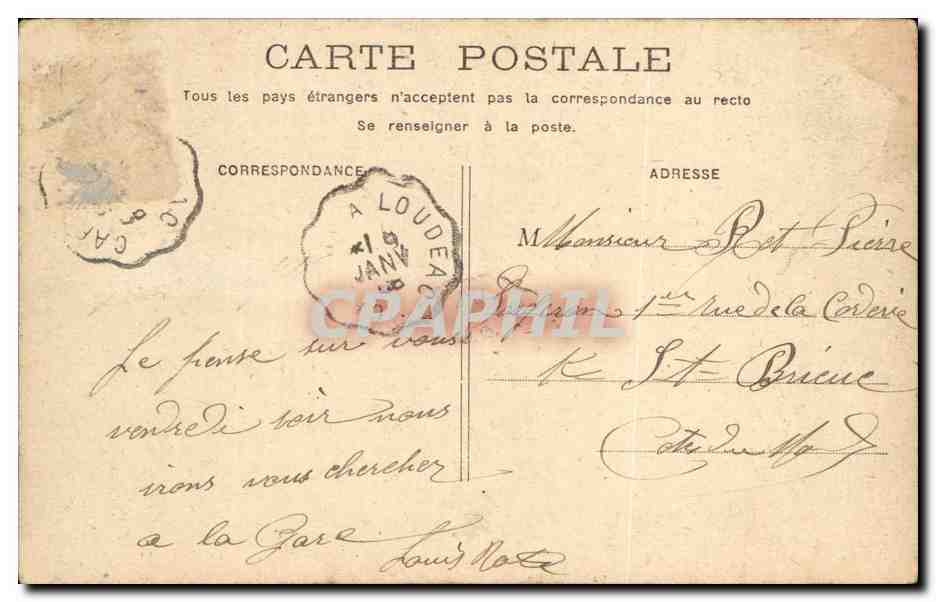 CARTE POSTALE
Tous les pays étrangers n'acceptent pas la correspondance au recto
Se renseigner à la poste.
CORRESPONDANCE
ADRESSE
A LOUDEAC
JANV
CAR
CPAPHIL
M Monsieur Pierre
1er rue de la Corderie
St Brieuc
Cotes du Nord
Je pense sur vous
vendredi soir nous
irons vous chercher
a la Gare
Louis